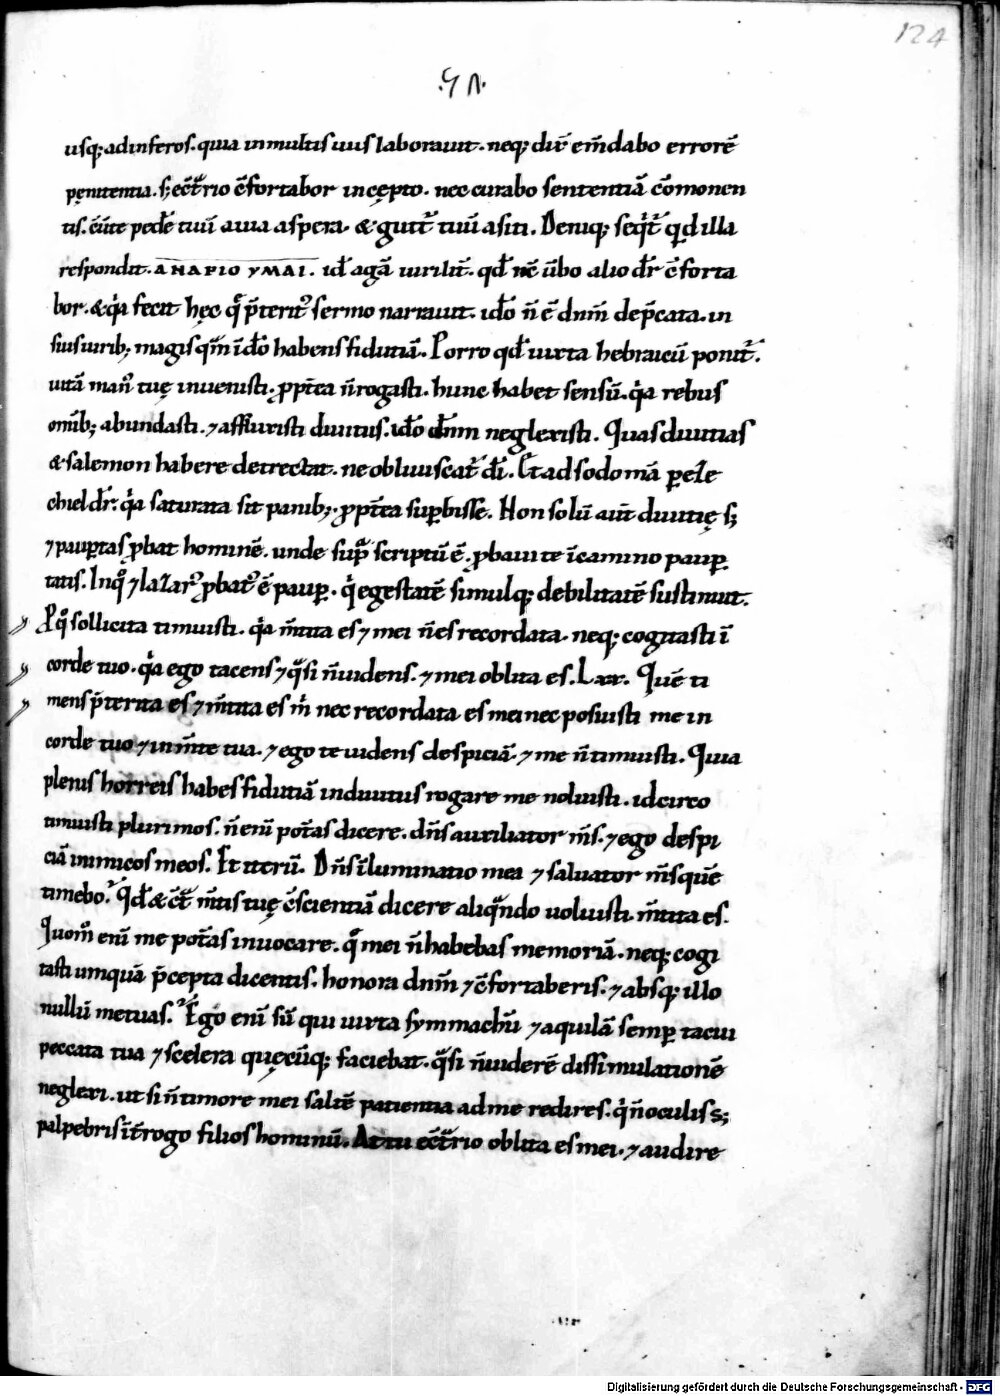 124
·GΛ·
usq; ad inferos. quia in multis uiis laborauit. neq; dix̄ em̄dabo errorē
pęnitentia. s; ec̄t̄rio c̄fortabor incępto. nec curabo sententiā c̄omonen
tis. c̄ūte pedē tuū a uia aspera. & gutt̄ tuū a siti. Deniq; seqit̄ qd illa
respondit. ΑΝΔΡΙΟΥΜΑΙ. id̄ agā uirilit̄. qd̄ nc̄ ūbo alio dr̄ c̄forta
bor. & qa fecit hęc q̄ p̄terit᷒ sermo narrauit. ido n̄ ē dnm̄ dep̄cata. in
suis uirib; magis qm̄ ī do habens fidutiā. Porro qd̄ iuxta hebraicū ponit̄.
uitā man᷒ tuę inuenisti. ꝓpt̄ea n̄ rogasti. hunc habet sensū. qa rebus
om̄ib; abundasti. ⁊ affluxisti diuitiis. ido dnm neglexisti. Quas diuitias
& salemon habere detrectat. ne obliuiscat̄ dī. Et ad sodomā ꝑ eze
chiel dr̄. qa saturata sit panib;. ꝓpt̄ea suꝑbisse. Non solū aut̄ diuitię s;
⁊ pauꝑtas ꝓbat hominē. unde sup̄ scriptū ē. ꝓbaui te ī camino pauꝑ
tatis. In quo ⁊ lazar᷒ ꝓbat᷒ ē pauꝑ. qi egestatē simulq; debilitatē sustinuit.
P quo sollicita timuisti. qa m̄tita es ⁊ mei n̄ es recordata. neq; cogitasti ī
corde tuo. qa ego tacens ⁊ q̄si n̄ uidens. ⁊ mei oblita es. Lxx. Quē ti
mens p̄terita es ⁊ m̄tita es m̄ nec recordata es mei nec posuisti me in
corde tuo ⁊ in m̄te tua. ⁊ ego te uidens despiciā. ⁊ me n̄ timuisti. Quia
plenis horreis habes fidutiā in diuitiis rogare me noluisti. idcirco
timuisti plurimos. n̄ eni pot̄as dicere. dn̄s auxiliator m̄s. ⁊ ego despi
ciā inimicos meos. Et iterū. Dn̄s īluminatio mea ⁊ saluator m̄s quē
timebo? Qd̄ & c̄t̄ m̄tis tuę c̄scientiā dicere aliqndo uoluisti. m̄tita es.
Quom̄ eni me pot̄as inuocare. q̄ mei n̄ habebas memoriā. neq; cogi
tasti umquā p̄cepta dicentis. honora dnm̄ ⁊ c̄fortaberis. ⁊ absq; illo
nullū metuas? Ego eni sū qui iuxta symmachū ⁊ aquilā semꝑ tacui
peccata tua ⁊ scelera quęcūq; faciebat. q̄si n̄ uiderē dissimulationē
neglexi. ut si n̄ timore mei saltē patientia ad me redires. qi n̄ oculis s;
palpebris īt̄rogo filios hominū. At tu ec̄t̄rio oblita es mei. ⁊ audire
Digitalisierung gefördert durch die Deutsche Forschungsgemeinschaft - DFG